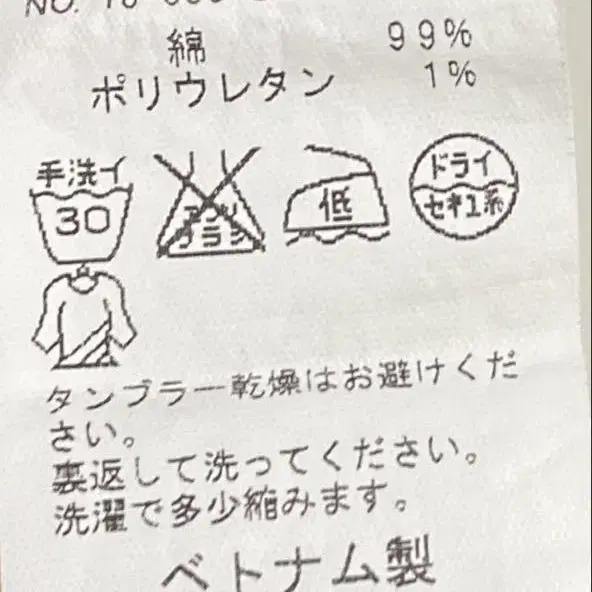 綿 99%
ポリウレタン 1%
手洗イ
30
エンソ
サラシ
低
ドライ
セキユ系
タンブラー乾燥はお避けくだ
さい。
裏返して洗ってください。
洗濯で多少縮みます。
ベトナム製